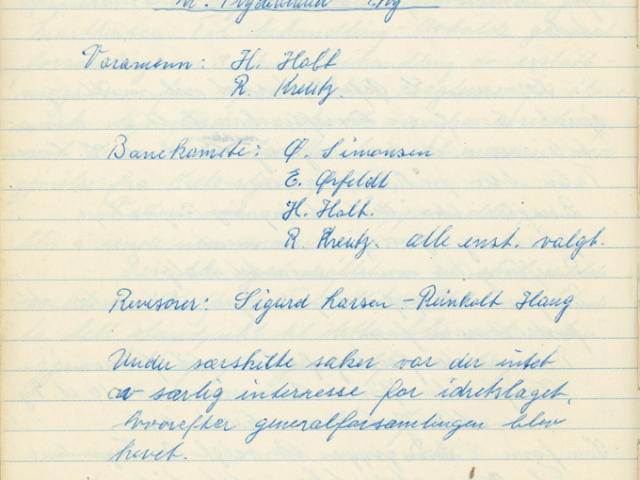 Varamenn: H. Holt
R. Kreutz.
Banekomite: Ø. Simonsen
E. Ørfeldt
H. Holt.
R. Kreutz. alle enst. valgt.
Revisorer: Sigurd Larsen - Reinholt Haug
Under særskilte saker var der intet
av særlig interesse for idretslaget,
hvorefter generalforsamlingen blev
hevet.